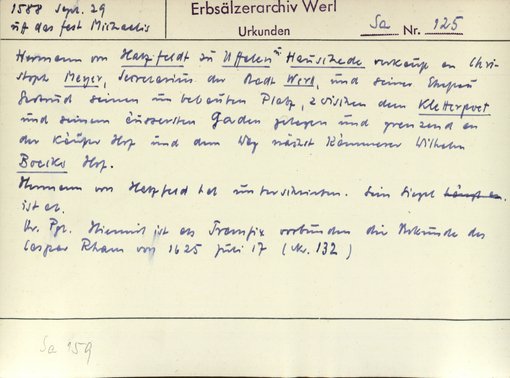 1588 Sept. 29
uff das fest Michaelis
Erbsälzerarchiv Werl
Urkunden
Sa Nr. 125
Hermann von Hatzfeldt zu Uffelen u Hauschede verkauft an Chri-
stoph Meyer, Secretarius der Stadt Werl, und seiner Ehefrau
Gertrud seinen unbebauten Platz, zwischen dem Kletterpoet
und seinem äussersten Gaden gelegen und grenzend an
der Käufer Hof und dem Weg nächst Kämmerer Wilhelm
Boeiks Hof.
Hermann von Hatzfeld hat unterschrieben. Sein Siegel
ist ab.
Or. Pgt. Hiermit ist als Transfix verbunden die Urkunde des
Caspar Rham von 1625 Juli 17 (Nr. 132)
Sa 159